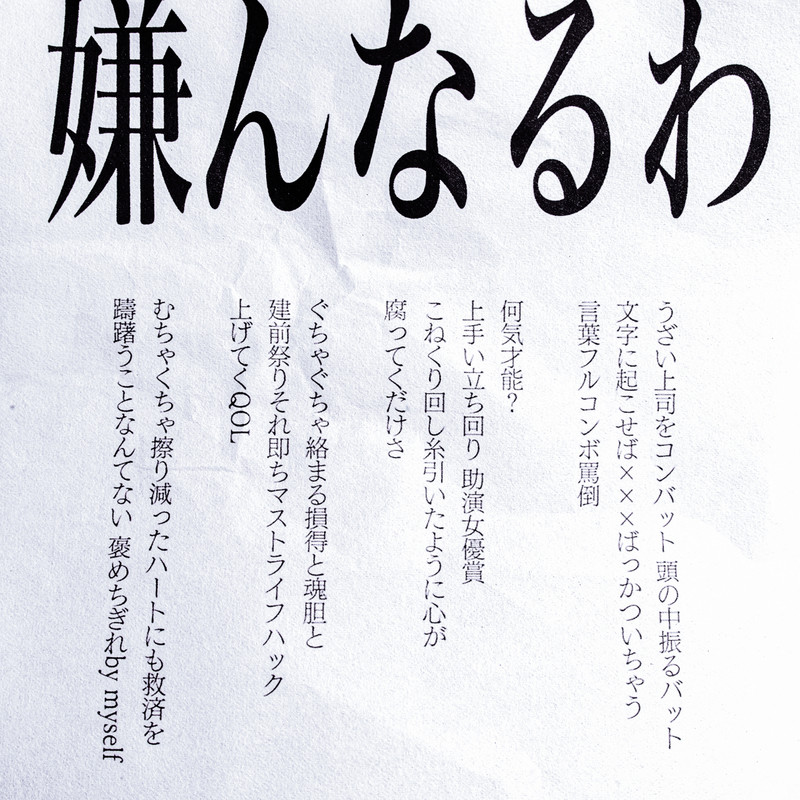 嫌んなるわ
うざい上司をコンバット 頭の中振るバット
文字に起こせば×××ばっかついちゃう
言葉フルコンボ罵倒
何気才能?
上手い立ち回り 助演女優賞
こねくり回し糸引いたように心が
腐ってくだけさ
ぐちゃぐちゃ絡まる損得と魂胆と
建前祭りそれ即ちマストライフハック
上げてくQOL
むちゃくちゃ擦り減ったハートにも救済を
躊躇うことなんてない 褒めちぎれby myself